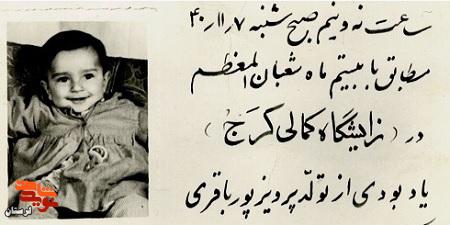 ساعت نه و نیم صبح شنبه ۴۰/۱۱/۷
مطابق با بیستم ماه شعبان المعظم
در ( زایشگاه کمالی کرج )
یادبودی از تولد پرویز پورباقری
نوید شاهد
لرستان